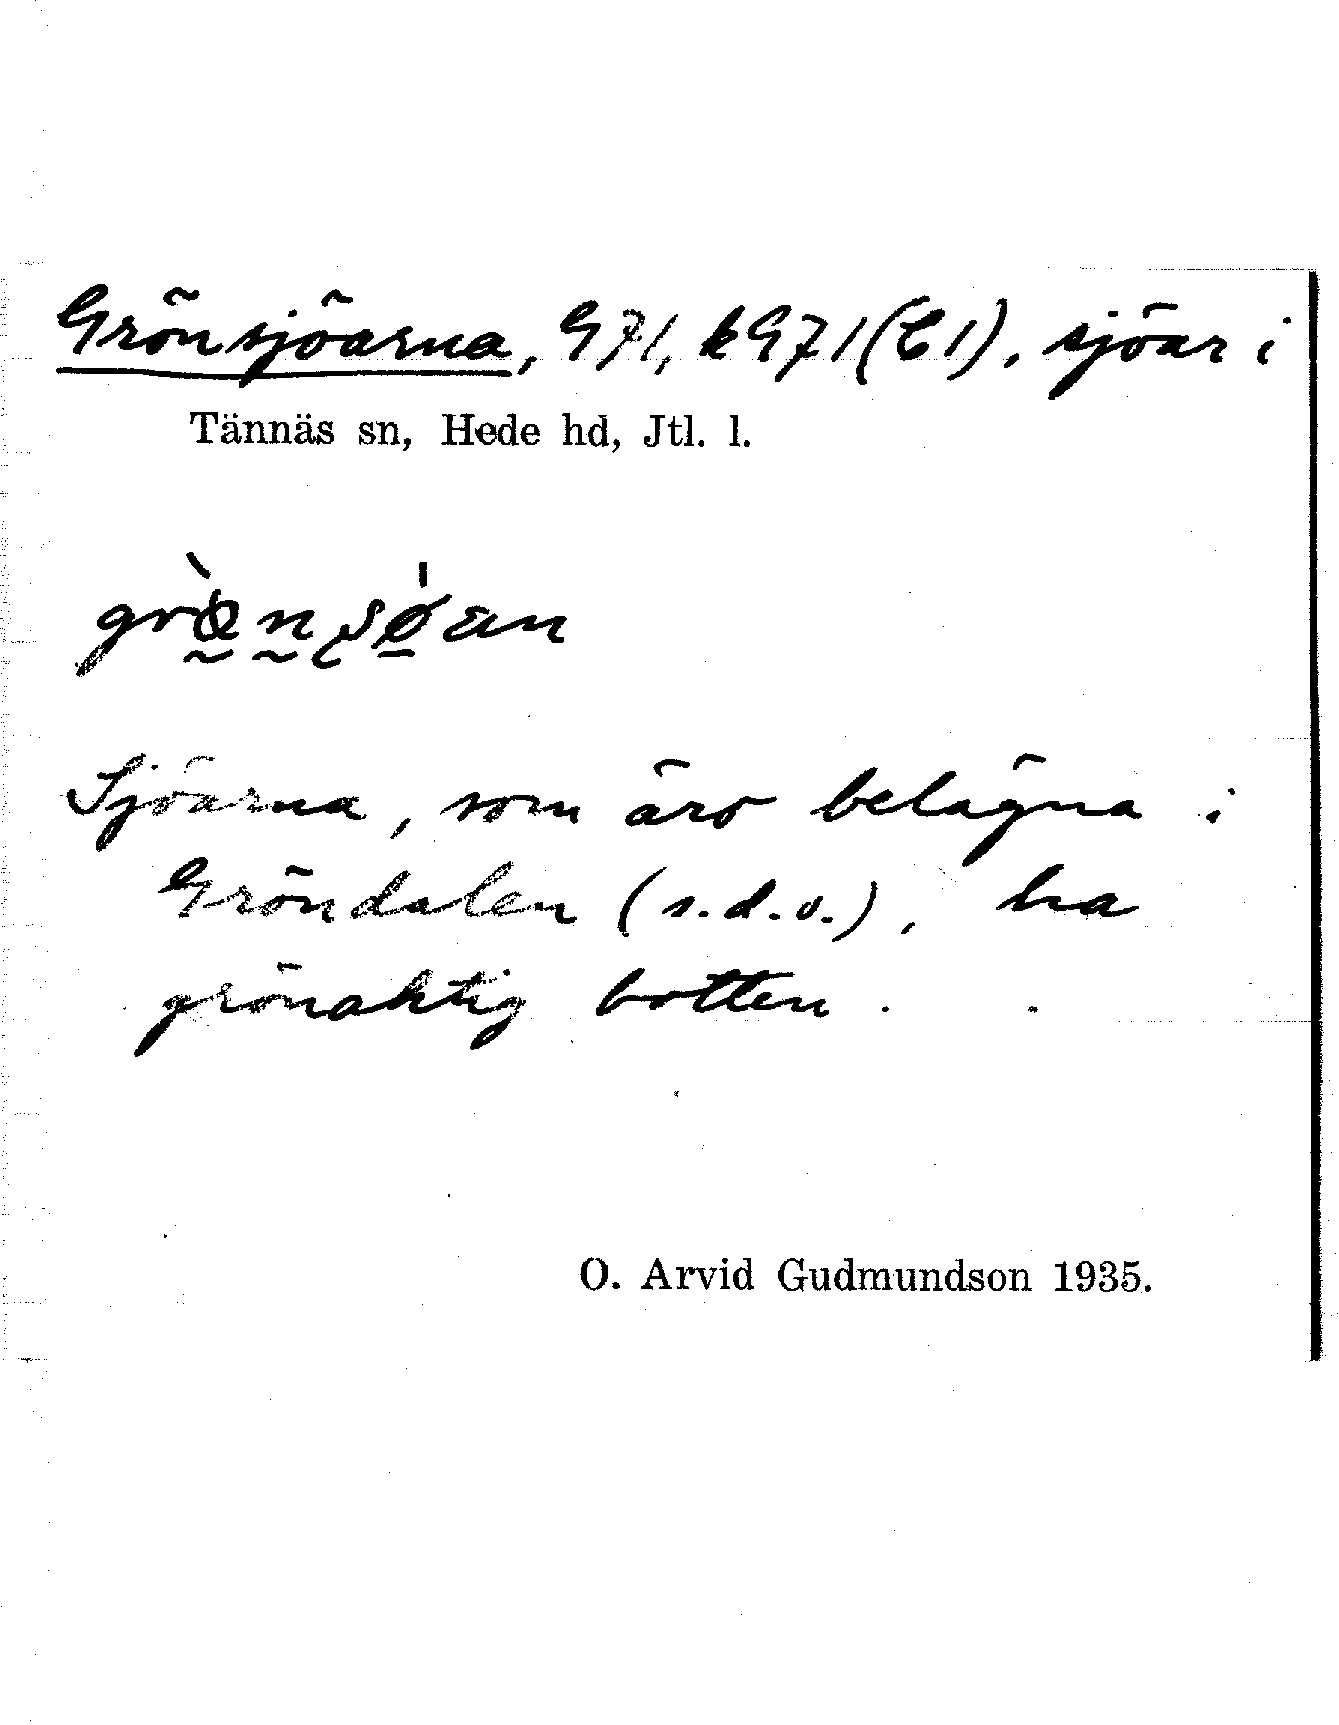 Grönsjöarna, G71, kG71(C1), sjöar i
Tännäs sn, Hede hd, Jtl. l.
Sjöarna, som äro belägna i
Gröndalen (s.d.o.), ha
grönaktig botten.
O. Arvid Gudmundson 1935.